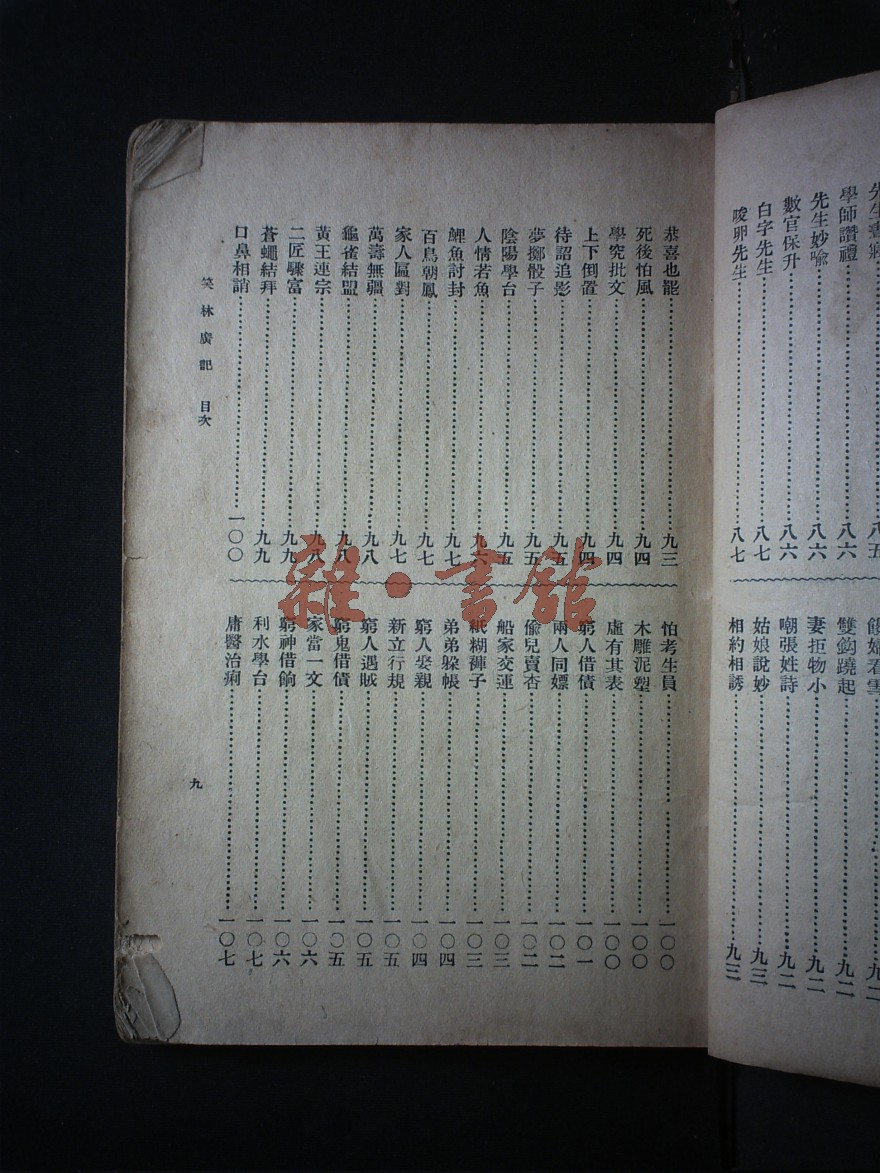 先生書病……八五
學師讚禮……八六
先生妙喻……八六
數官保升……八六
白字先生……八七
唆卵先生……八七
雙鈎蹺起……九二
妻拒物小……九二
嘲張姓詩……九二
姑娘說妙……九三
相約相誘……九三
恭喜也罷……九三
死後怕風……九四
學究批文……九四
上下倒置……九四
待詔追影……九五
夢擲骰子……九五
陰陽學台……九五
人情若魚……九六
鯉魚討封……九七
百鳥朝鳳……九七
家人匾對……九七
萬壽無疆……九八
龜雀結盟……九八
黃王連宗……九八
二匠驟富……九九
蒼蠅結拜……九九
口鼻相誚……一〇〇
怕考生員……一〇〇
木雕泥塑……一〇〇
虛有其表……一〇〇
窮人借債……一〇一
兩人同嫖……一〇二
偷兒賣杏……一〇二
船家交運……一〇三
紙糊褲子……一〇三
弟弟躲帳……一〇四
窮人娶親……一〇四
新立行規……一〇五
窮人遇賊……一〇五
窮鬼借債……一〇五
家當一文……一〇六
窮神借餉……一〇六
利水學台……一〇七
庸醫治痢……一〇七
笑林廣記 目次
九
雜·書館